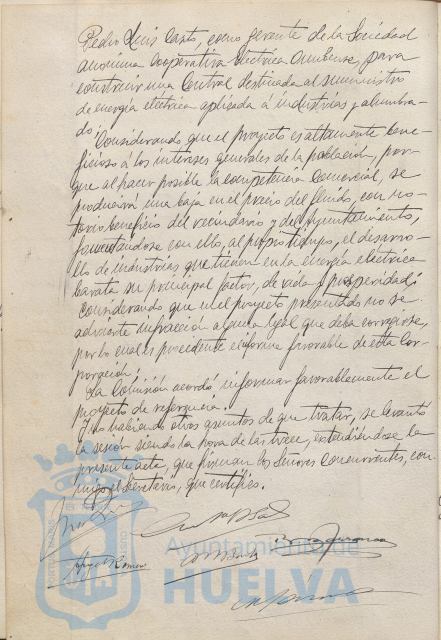 Pedro Luis Casto, como gerente de la Sociedad
anónima Cooperativa Eléctrica Onubense, para
construir una Central destinada al suministro
de energía eléctrica aplicada á industrias y alumbra-
do;
Considerando que el proyecto es altamente bene-
ficioso á los intereses generales de la población, por-
que al hacer posible la competencia comercial, se
producirá una baja en el precio del fluido, con no-
torio beneficio del vecindario y del Ayuntamiento,
fomentándose con ello, al propio tiempo, el desarro-
llo de industrias que tienen en la energía eléctrica
barata su principal factor, de vida y prosperidad;
Considerando que en el proyecto presentado no se
advierte infracción alguna legal que deba corregirse,
por lo cual es procedente el informe favorable de esta Cor-
poración;
La Comisión acordó informar favorablemente el
proyecto de referencia.
Y no habiendo otros asuntos de que tratar, se levantó
la sesión siendo la hora de las trece, extendiéndose la
presente acta, que firman los Señores concurrentes, con-
migo el Secretario, que certifico.
Ayuntamiento de
HUELVA